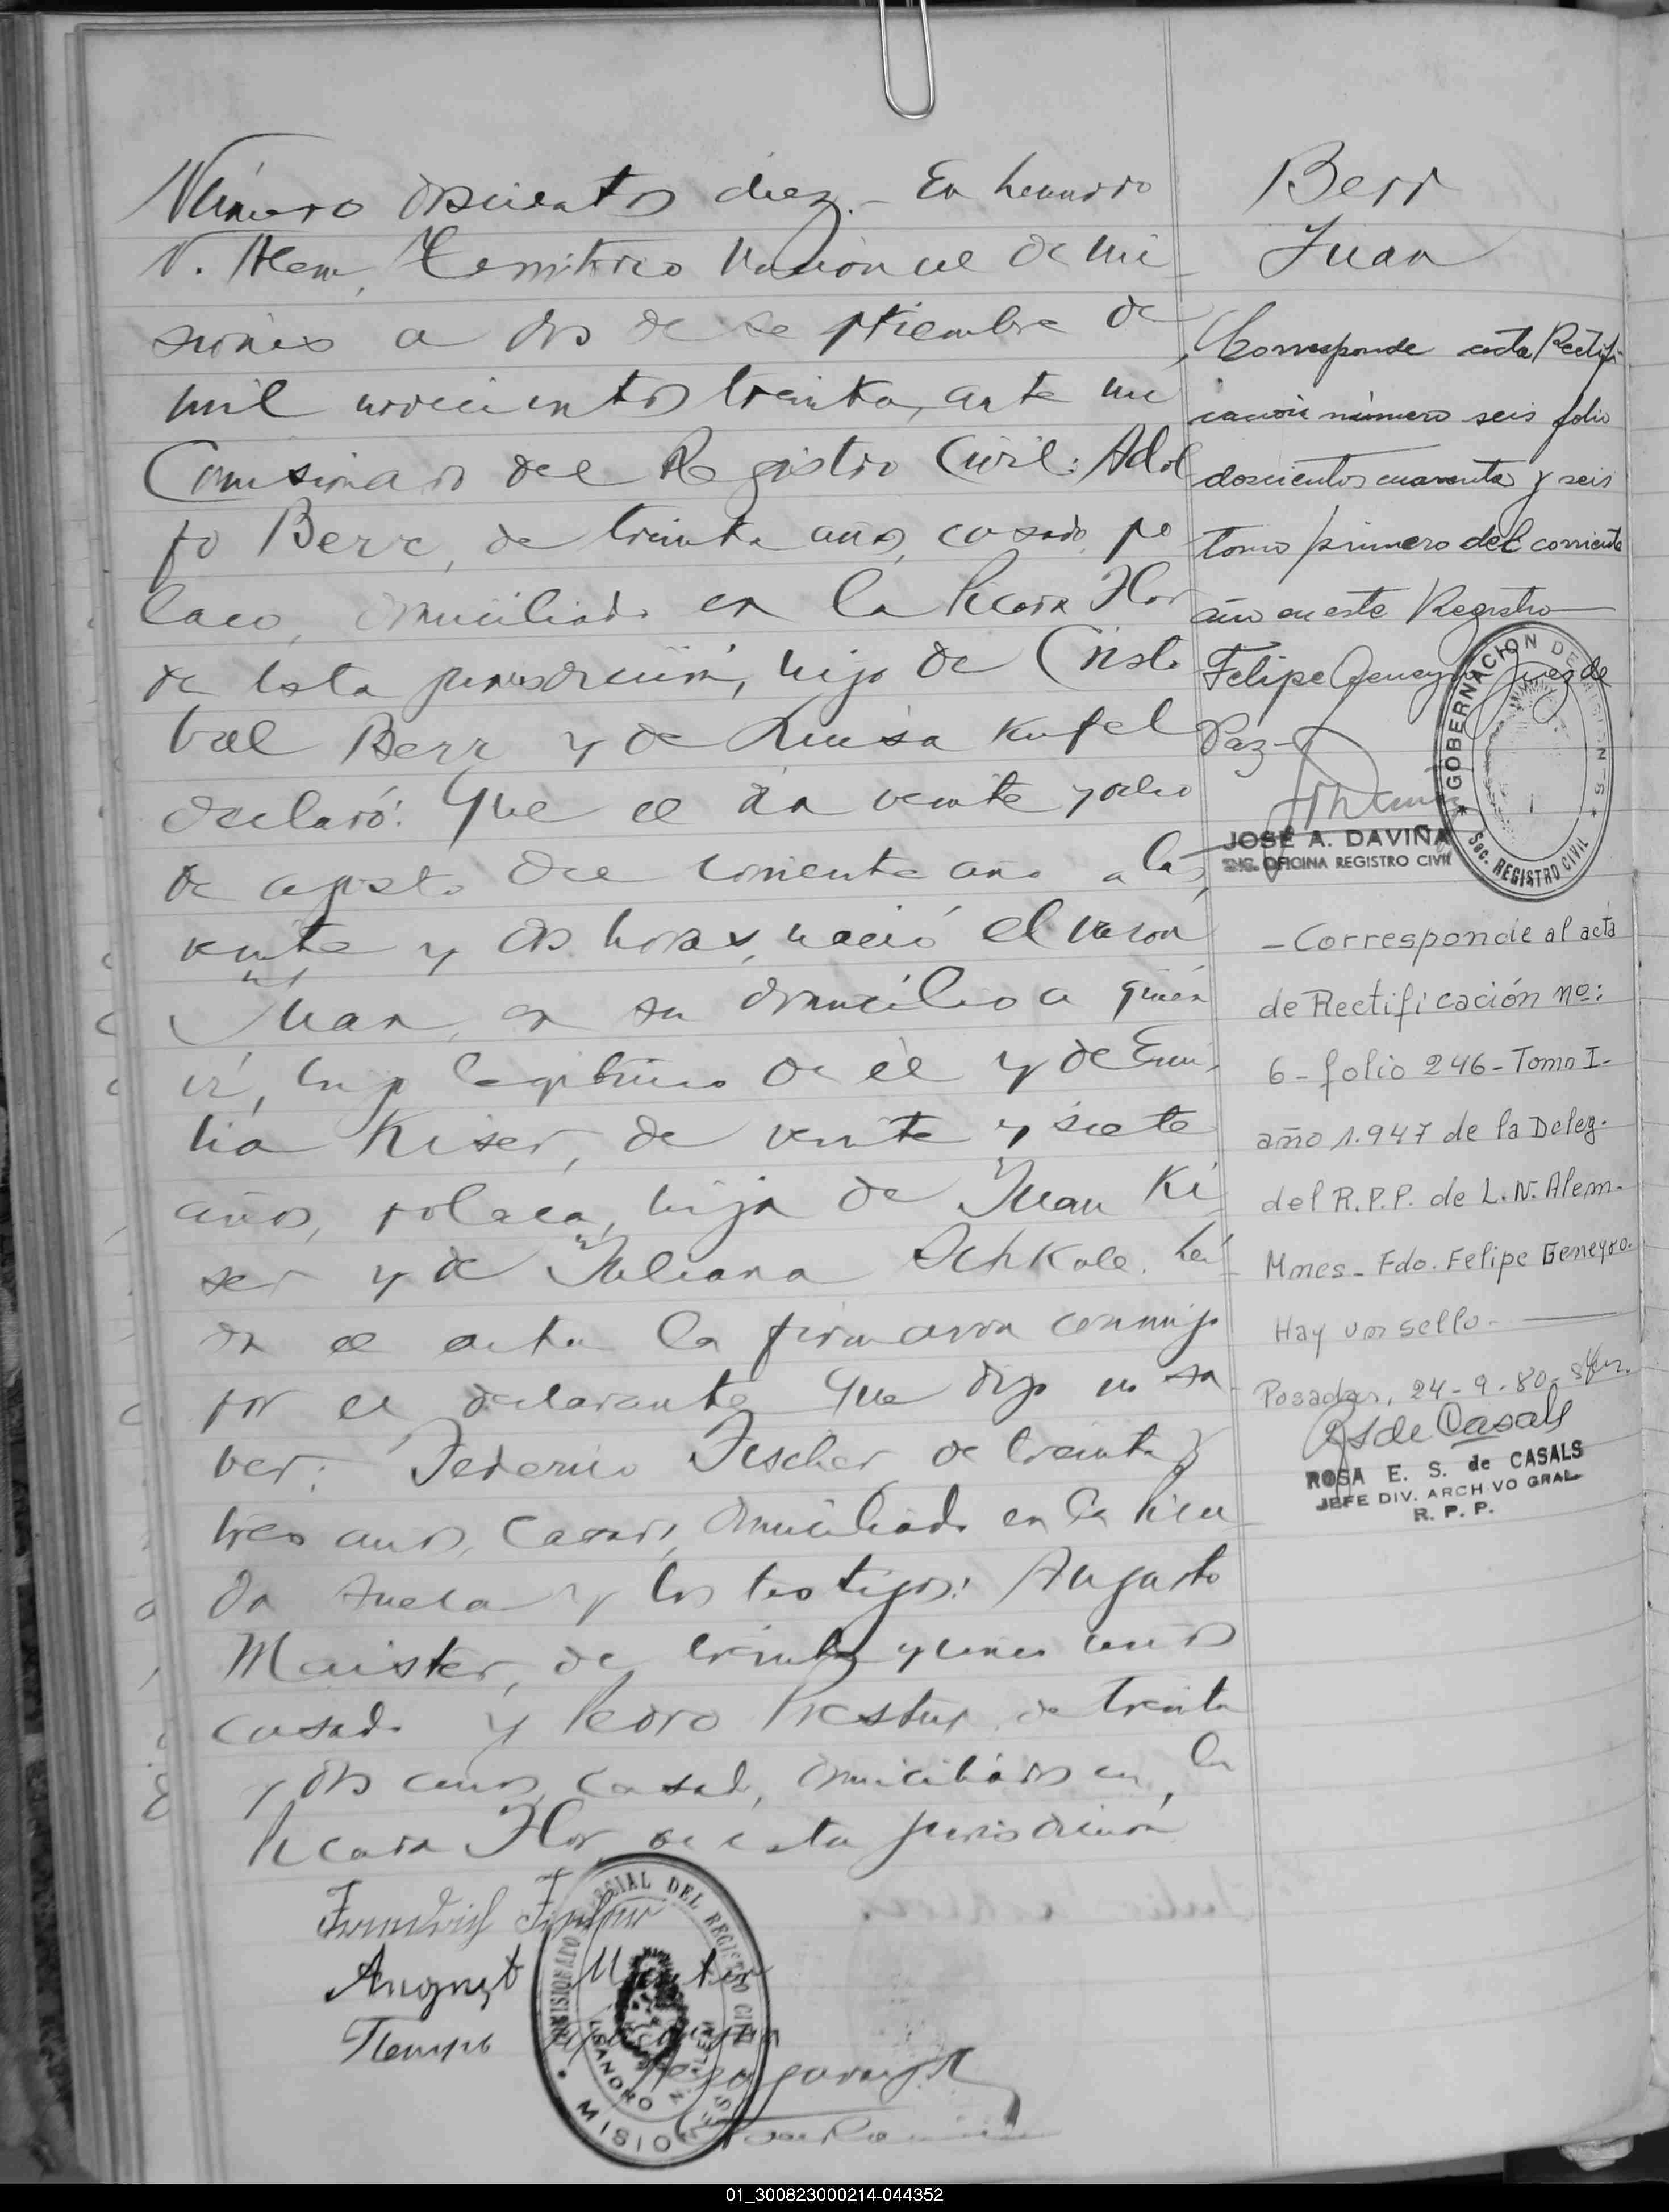 Número doscientos diez.- En Leandro
N. Alem, Territorio Nacional de Mi
siones a dos de septiembre de
mil novecientos treinta, ante mi
Comisionado del Registro Civil: Adol
fo Berr, de treinta años, casado, po
laco, domiciliado en la Picada Flor
de esta jurisdicción, hijo de Cristo
bal Berr y de Luisa Kufel
declaró: Que el dia veinte y ocho
de agosto del corriente año a las
veinte y dos horas, nació el varón
Juan, en su domicilio a quien
ví, hijo legitimo de él y de Emi
lia Kiser, de veinte y siete
años, polaca, hija de Juan Ki
ser y de Juliana Schkale. Leí
da el acta la firmaron conmigo
por el declarante que dijo no sa
ber: Federico Fischer de treinta y
tres años, casado, domiciliado en la Pica
da Sueca y los testigos: Augusto
Maister, de treinta y un años
casado y Pedro Prestup, de treinta
y dos años, casado, domiciliados en la
Picada Flor, de esta jurisdicción
Friedrich Fischer
August
COMISIONADO DEL REGISTRO CIVIL
LEANDRO N. ALEM
MISIONES
Berr
Juan
Corresponde acta Rectifi
cación número seis folio
doscientos cuarenta y seis
tomo primero del corriente
año en este Registro
Felipe Geneyro Juez de
Paz-
GOBERNACION DE MISIONES
Sec. REGISTRO CIVIL
JOSÉ A. DAVIÑA
ENC. OFICINA REGISTRO CIVIL
- Corresponde al acta
de Rectificación nº:
6 - folio 246 - Tomo I-
año 1.947 de la Deleg.
del R.P.P. de L.N. Alem-
Mnes - Fdo. Felipe Geneyro.
Hay un sello-
Posadas, 24-9-80-
RSdeCasals
ROSA E. S. de CASALS
JEFE DIV. ARCHIVO GRAL
R. P. P.
01_300823000214-044352